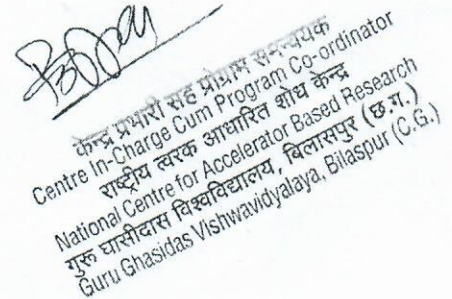 केन्द्र प्रभारी सह प्रोग्राम समन्वयक
Centre In-Charge Cum Program Co-ordinator
राष्ट्रीय त्वरक आधारित शोध केन्द्र
National Centre for Accelerator Based Research
गुरू घासीदास विश्वविद्यालय, बिलासपुर (छ.ग.)
Guru Ghasidas Vishwavidyalaya, Bilaspur (C.G.)